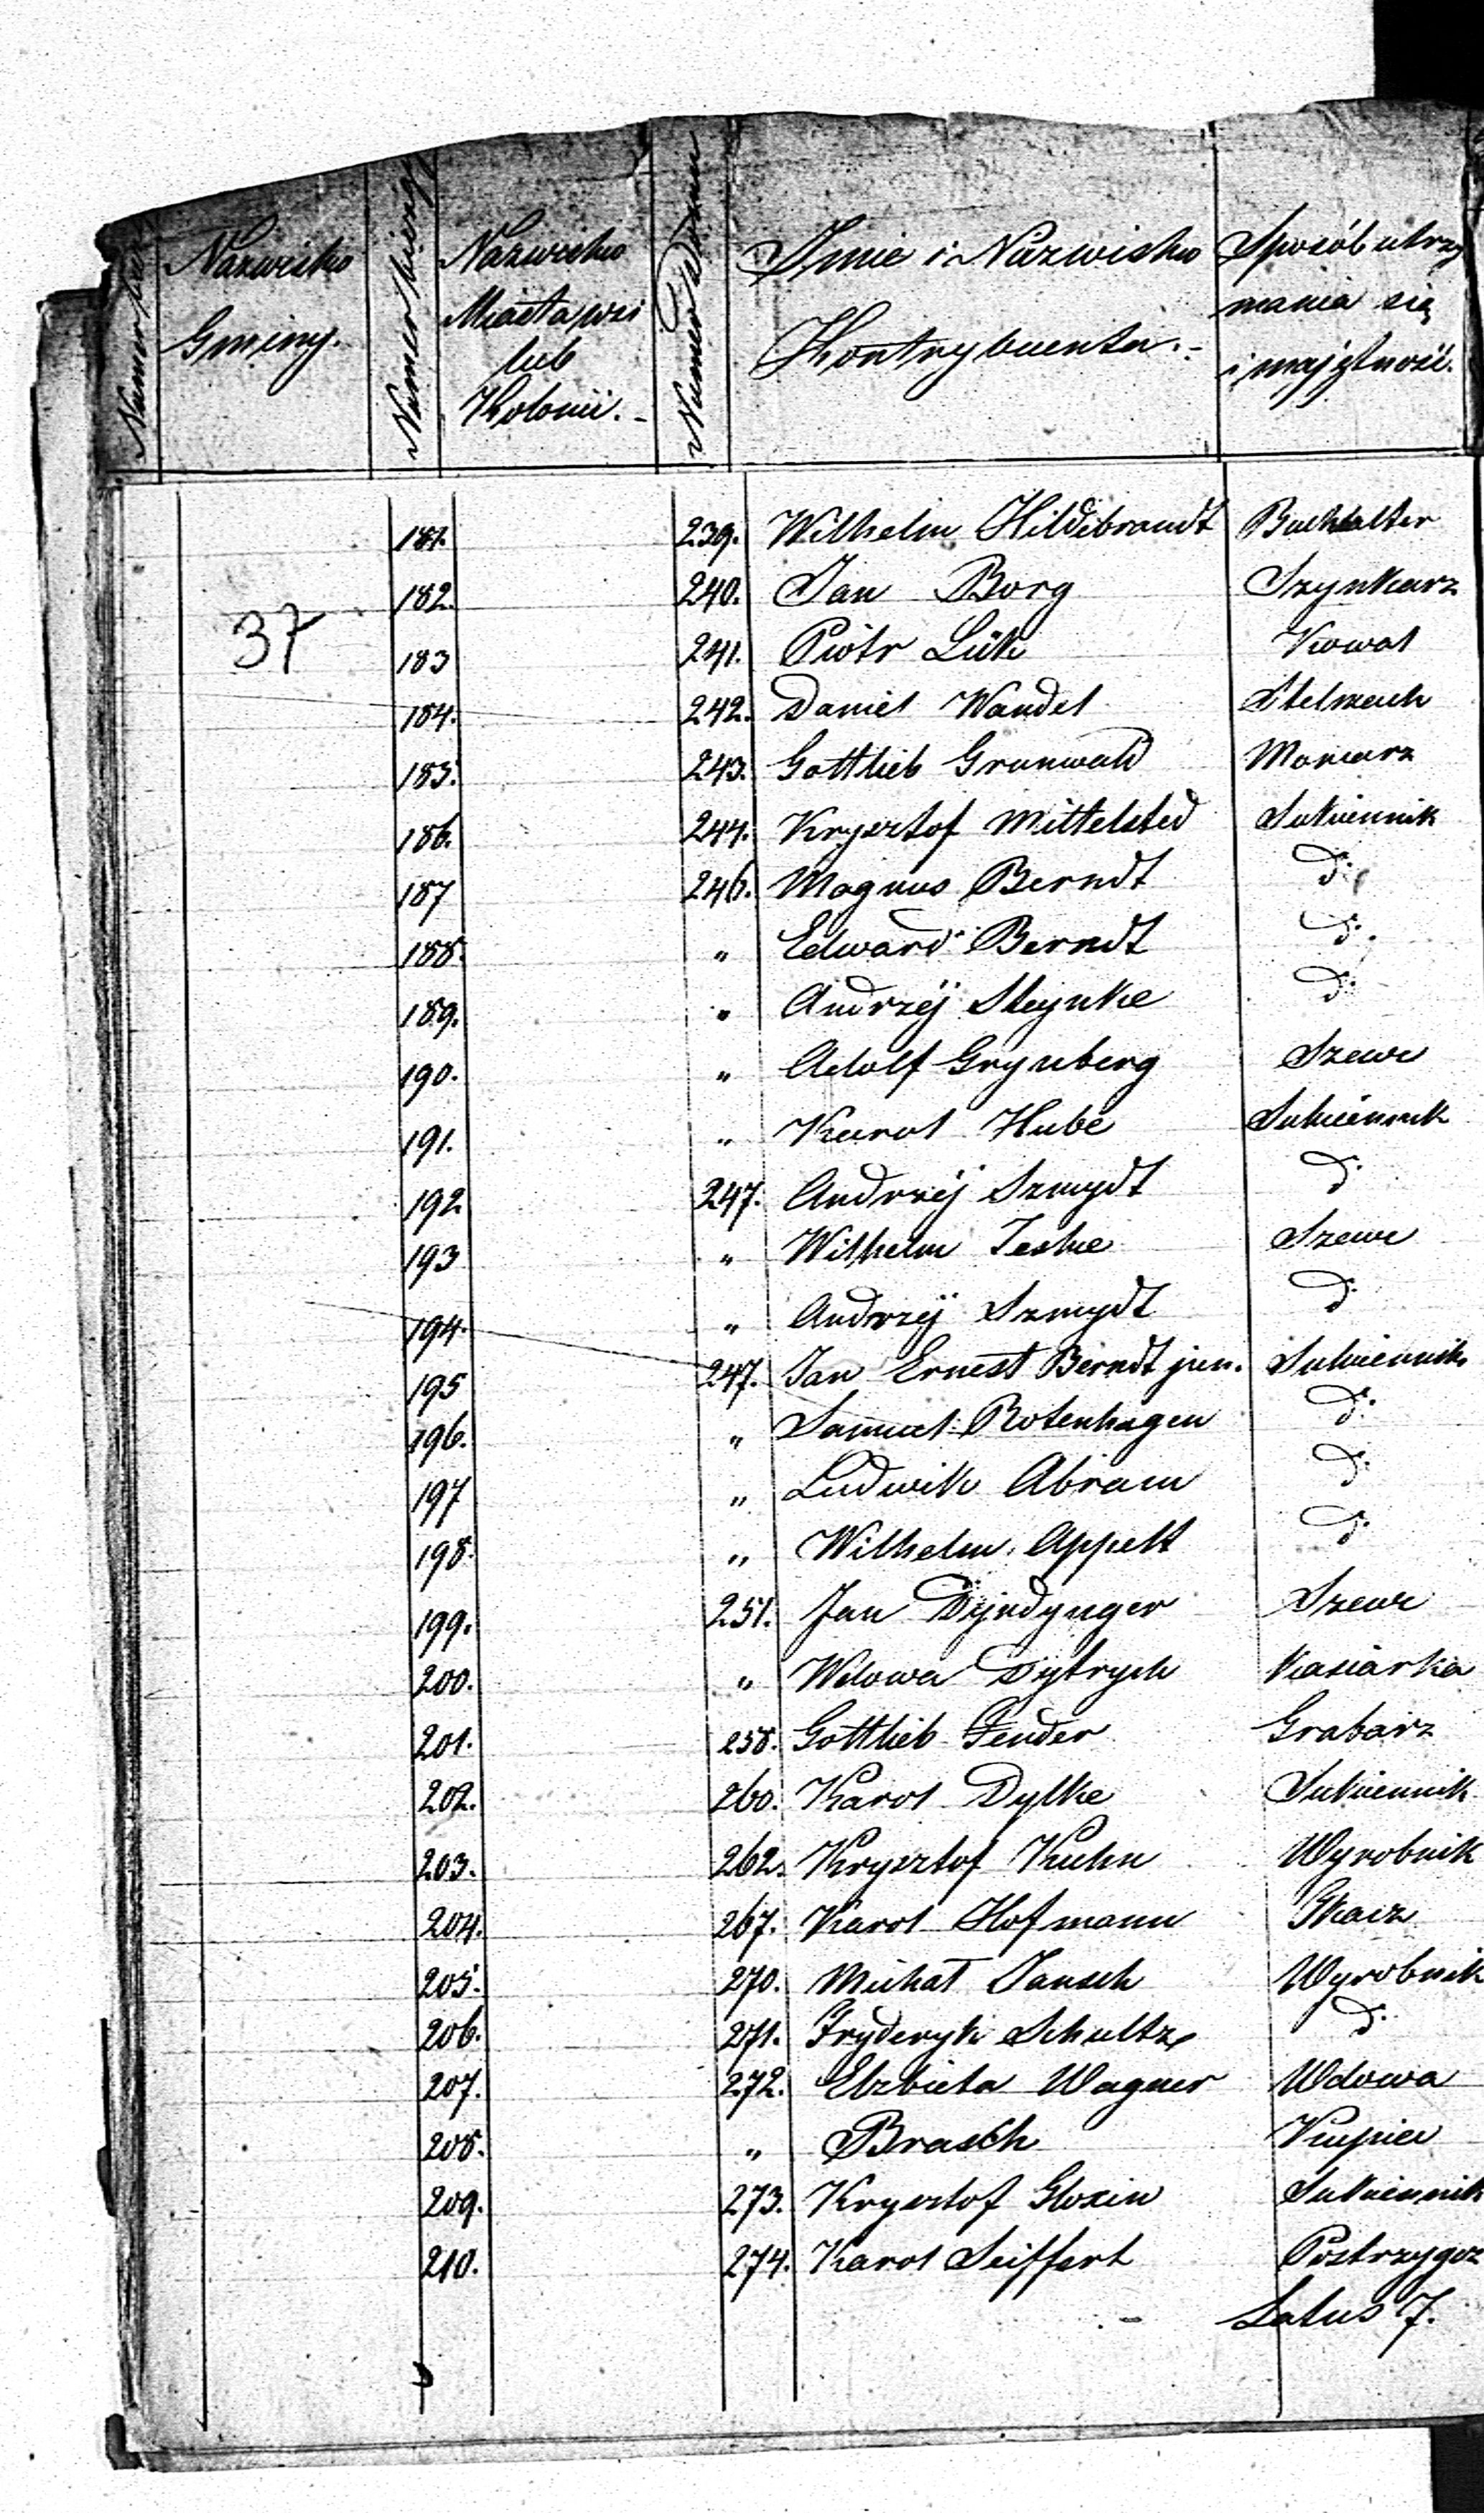 Nazwisko Gminy.
Numer bieżący
Nazwisko Miasta wsi lub Kolonii. -
Numer Domu
Imie i Nazwisko Kontrybuenta. -
Sposób utrzymania się i majętność.
37
181. 239. Wilhelm Hildebrandt Buchhalter
182. 240. Jan Borg Szynkarz
183 241. Piotr Lük Kowal
184. 242. Daniel Wandel Stelmach
185. 243. Gottlieb Grunwald Mularz
186. 244. Krysztof Mittelsted Sukiennik
187 246. Magnus Berndt d:
188. " Edward Berndt d:
189. " Andrzej Steynke d:
190. " Adolf Grynberg Szewc
191. " Karol Hube Sukiennik
192 247. Andrzéj Szmydt d:
193 " Wilhelm Jeske Szewc
194. " Andrzej Szmydt d:
195 247. Jan Ernest Berndt jun. Sukiennik
196. " Samuel Rotenhagen d:
197 " Ludwik Abram d:
198. " Wilhelm Appelt d:
199. 251. Jan Dyndynger Szewc
200. " Wdowa Dytrych Kasiarka
201. 258. Gottlieb Fender Grabarz
202. 260. Karol Dylke Sukiennik
203. 262. Krysztof Kuhn Wyrobnik
204. 267. Karol Hofmann Tkacz
205. 270. Michał Jansch Wyrobnik
206. 271. Fryderyk Schultz d:
207. 272. Elzbieta Wagner Wdowa
208. " Brasch Kupiec
209. 273. Krysztof Gloxin Sukiennik
210. 274. Karol Seiffert Postrzygacz
Latus 7.